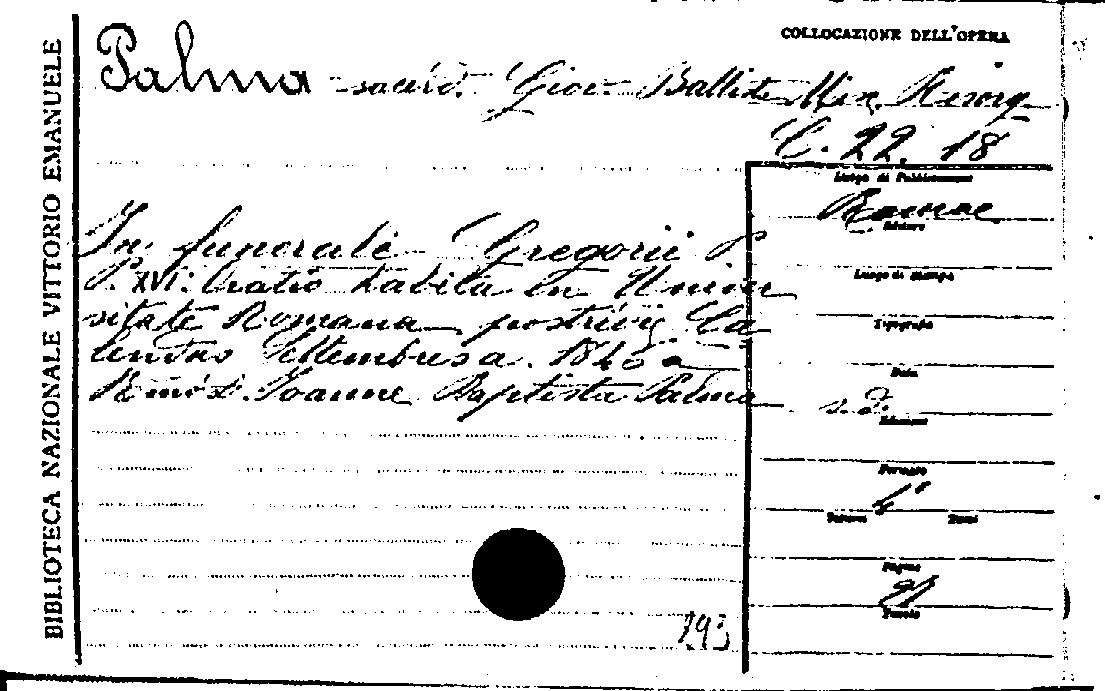 BIBLIOTECA NAZIONALE VITTORIO EMANUELE
COLLOCAZIONE DELL'OPERA
Palma sacerd. Giov. Battista Misc. Risorg.
C. 22. 18
Luogo di Pubblicazione
Romae
Editore
In funerale Gregorii P.
P. XVI: Oratio habita in Univer
Luogo di stampa
sitate Romana postridie Ca
Tipografo
lendas Settembres a. 1846 a
Data
Joanne Baptista Palma
s. d.
Edizione
Formato
4°
Volumi Tomi
Pagine
Tavole
193